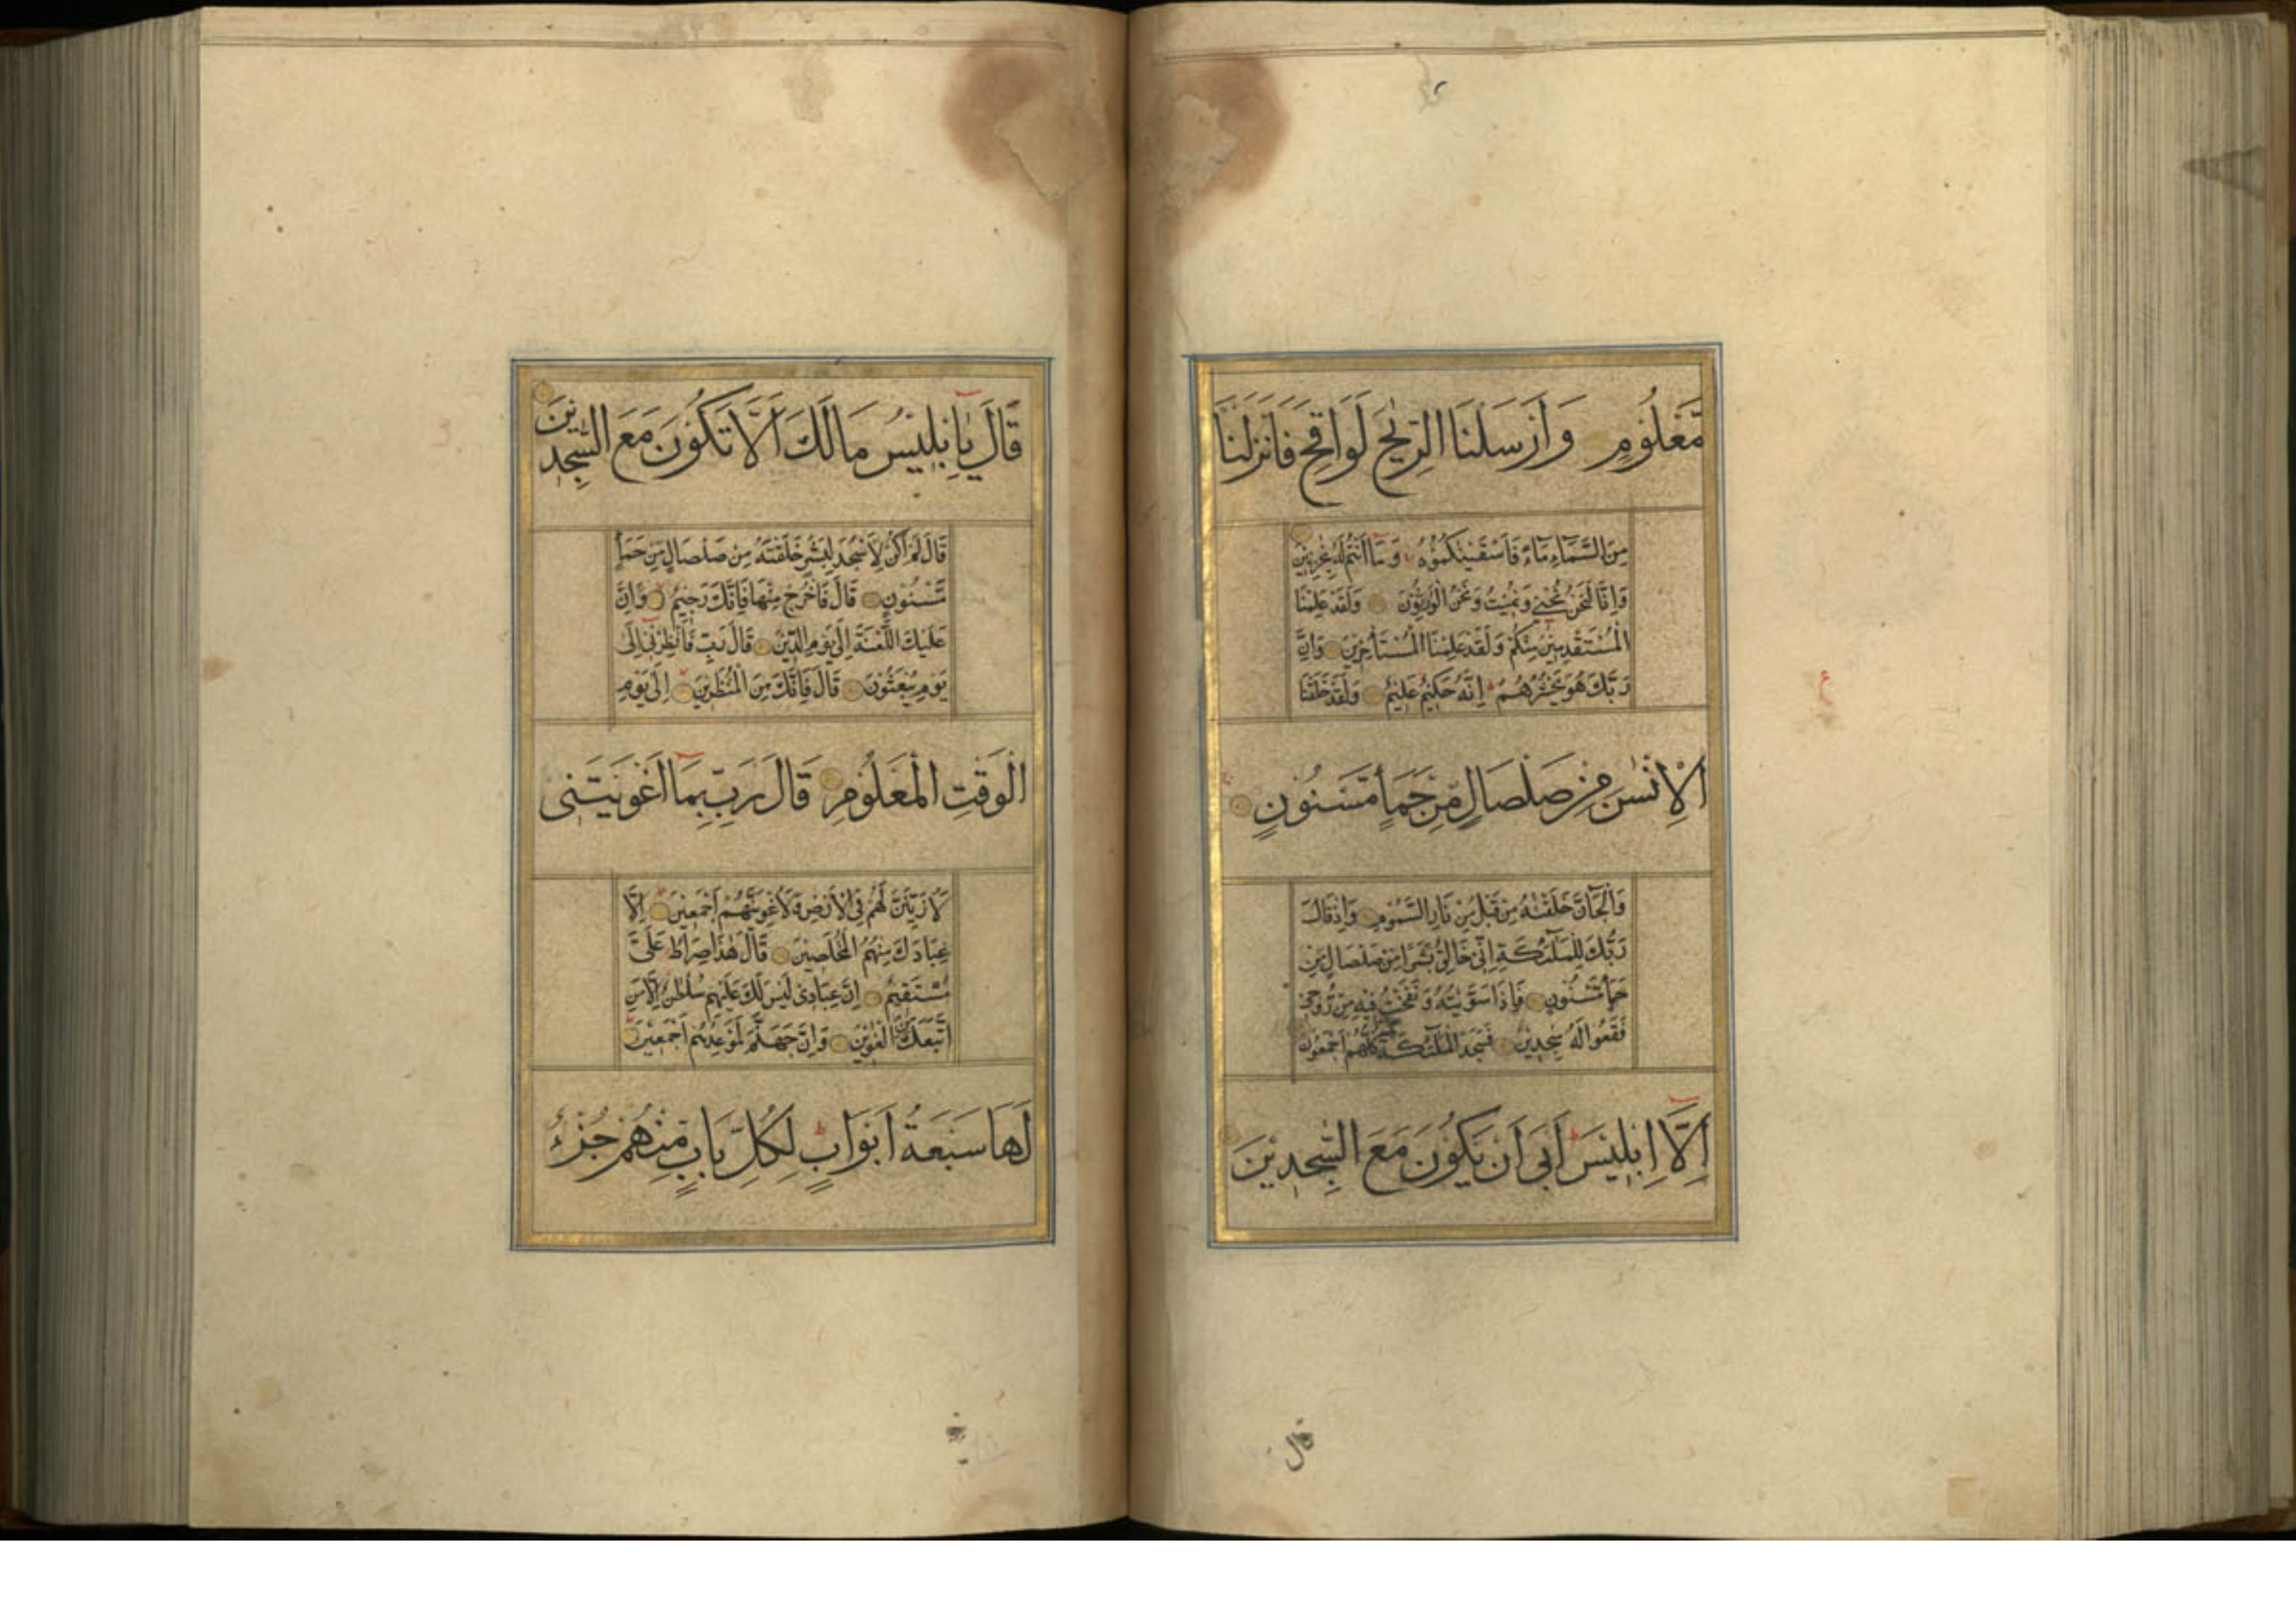 مَّعْلُومٍ وَاَرْسَلْنَا الرِّيٰحَ لَوَاقِحَ فَاَنْزَلْنَا
مِنَ السَّمَآءِ مَآءً فَاَسْقَيْنٰكُمُوْهُ وَمَآ اَنْتُمْ لَهُ بِخٰزِنِيْنَ
وَاِنَّا لَنَحْنُ نُحْيٖ وَنُمِيْتُ وَنَحْنُ الْوٰرِثُوْنَ وَلَقَدْ عَلِمْنَا
الْمُسْتَقْدِمِيْنَ مِنْكُمْ وَلَقَدْ عَلِمْنَا الْمُسْتَأْخِرِيْنَ وَاِنَّ
رَبَّكَ هُوَ يَحْشُرُهُمْ اِنَّهُ حَكِيْمٌ عَلِيْمٌ وَلَقَدْ خَلَقْنَا
الْاِنْسٰنَ مِنْ صَلْصَالٍ مِّنْ حَمَأٍ مَّسْنُوْنٍ
وَالْجَآنَّ خَلَقْنٰهُ مِنْ قَبْلُ مِنْ نَارِ السَّمُوْمِ وَاِذْ قَالَ
رَبُّكَ لِلْمَلٰٓئِكَةِ اِنّٖي خَالِقٌ بَشَرًا مِنْ صَلْصَالٍ مِنْ
حَمَأٍ مَّسْنُوْنٍ فَاِذَا سَوَّيْتُهُ وَنَفَخْتُ فِيْهِ مِنْ رُّوْحٖي
فَقَعُوْا لَهُ سٰجِدِيْنَ فَسَجَدَ الْمَلٰٓئِكَةُ كُلُّهُمْ اَجْمَعُوْنَ
اِلَّآ اِبْلِيْسَ اَبٰى اَنْ يَكُوْنَ مَعَ السّٰجِدِيْنَ
قال
قَالَ يَآ اِبْلِيْسُ مَالَكَ اَلَّا تَكُوْنَ مَعَ السّٰجِدِيْنَ
قَالَ لَمْ اَكُنْ لِاَسْجُدَ لِبَشَرٍ خَلَقْتَهُ مِنْ صَلْصَالٍ مِنْ حَمَأٍ
مَّسْنُوْنٍ قَالَ فَاخْرُجْ مِنْهَا فَاِنَّكَ رَجِيْمٌ وَاِنَّ
عَلَيْكَ اللَّعْنَةَ اِلٰى يَوْمِ الدِّيْنِ قَالَ رَبِّ فَاَنْظِرْنٖٓي اِلٰى
يَوْمِ يُبْعَثُوْنَ قَالَ فَاِنَّكَ مِنَ الْمُنْظَرِيْنَ اِلٰى يَوْمِ
الْوَقْتِ الْمَعْلُوْمِ قَالَ رَبِّ بِمَآ اَغْوَيْتَنٖى
لَاُزَيِّنَنَّ لَهُمْ فِى الْاَرْضِ وَلَاُغْوِيَنَّهُمْ اَجْمَعِيْنَ اِلَّا
عِبَادَكَ مِنْهُمُ الْمُخْلَصِيْنَ قَالَ هٰذَا صِرَاطٌ عَلَىَّ
مُسْتَقِيْمٌ اِنَّ عِبَادٖى لَيْسَ لَكَ عَلَيْهِمْ سُلْطٰنٌ اِلَّا مَنِ
اتَّبَعَكَ مِنَ الْغٰوِيْنَ وَاِنَّ جَهَنَّمَ لَمَوْعِدُهُمْ اَجْمَعِيْنَ
لَهَا سَبْعَةُ اَبْوَابٍ لِكُلِّ بَابٍ مِّنْهُمْ جُزْءٌ